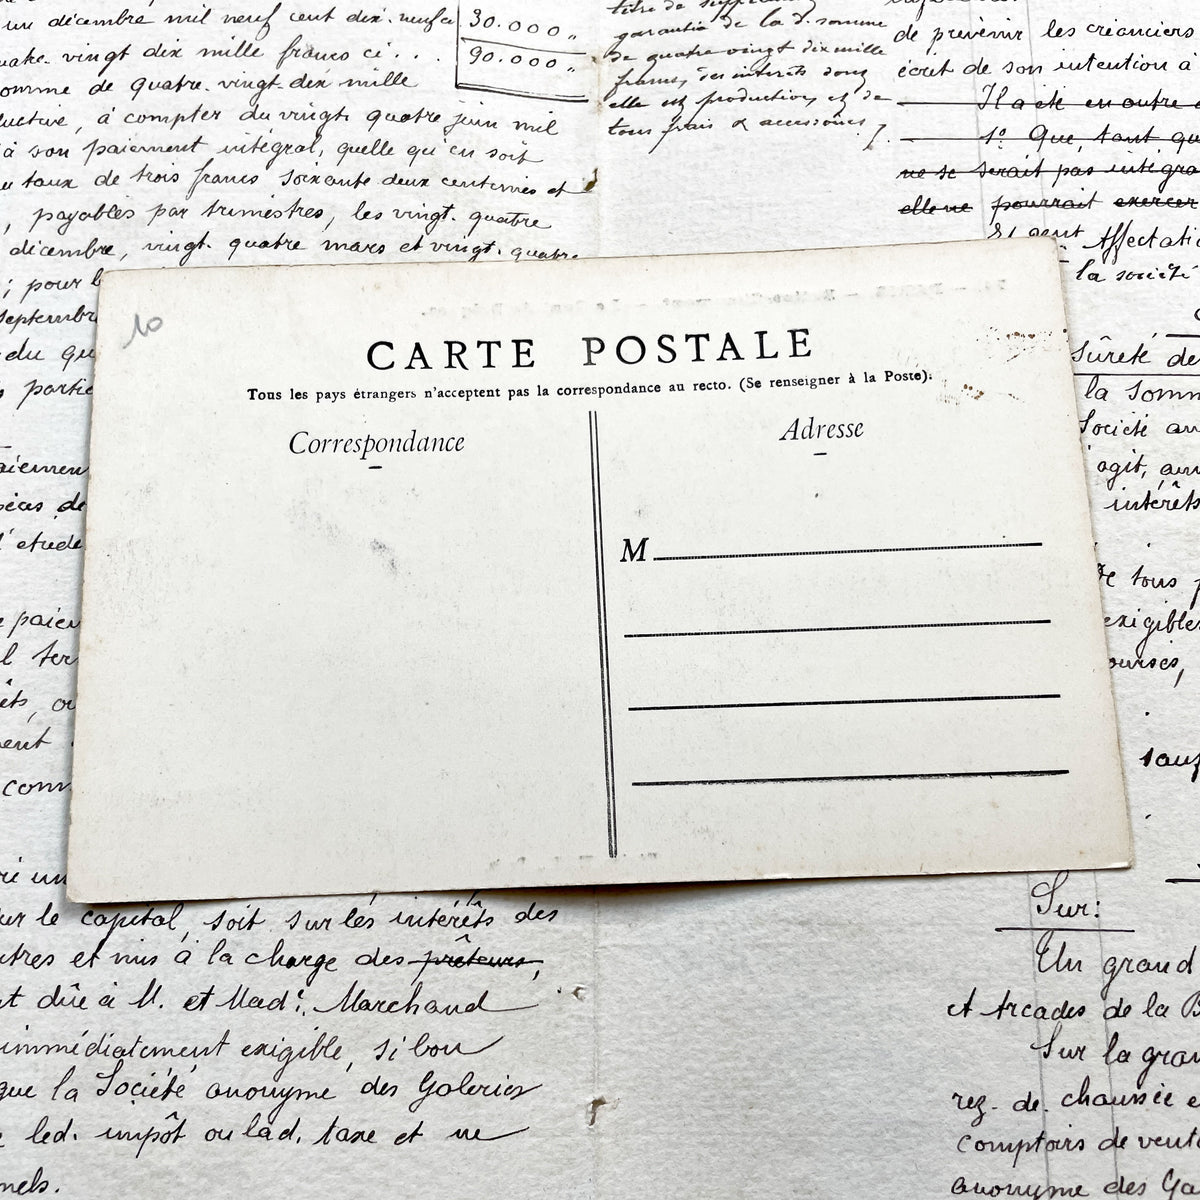 un décembre mil neuf cent dix-neuf
30.000 "
90.000 "
quatre-vingt dix mille francs ci...
somme de quatre-vingt-dix mille
à compter du vingt-quatre juin mil
à son paiement intégral, quelle qu'en soit
taux de trois francs soixante deux centimes et
, payables par trimestres, les vingt-quatre
décembre, vingt-quatre mars et vingt-quatre
; pour
septembre
du
titre de
garantie de la d. somme
de quatre vingt dix mille
francs, des intérêts dont
elle est productive, et de
tous frais & accessoires
de prévenir les créanciers
écrit de son intention à
Il a été en outre
1º Que, tant qu
ne se serait pas intégra
elle ne pourrait exercer
Affectatio
la société
sûreté de
la somm
Société an
agit, au
intérêts
de tous
exigible
10
CARTE POSTALE
Tous les pays étrangers n'acceptent pas la correspondance au recto. (Se renseigner à la Poste).
Correspondance
Adresse
M
l'étude
sauf
sur le capital, soit sur les intérêts des
et mis à la charge des prêteurs,
dûe à M. et Mad. Marchand
immédiatement exigible, si bon
que la Société anonyme des Galeries
led. impôt ou lad. taxe et ne
Sur:
Un grand
et Arcades de la B
Sur la gran
rez-de-chaussée e
comptoirs de vente
anonyme des Ga